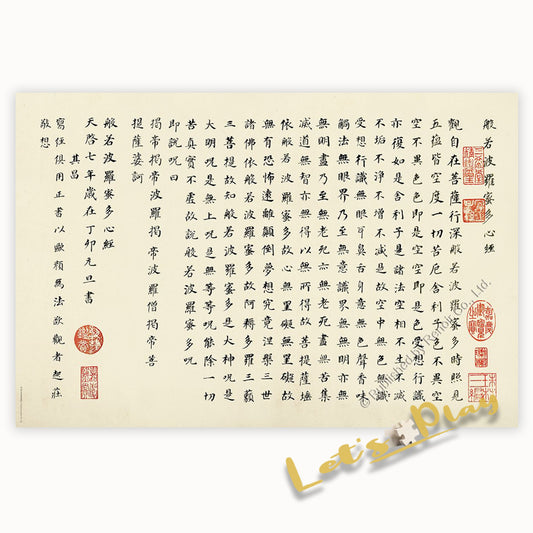 般若波羅蜜多心經
觀自在菩薩行深般若波羅蜜多時照見
五蘊皆空度一切苦厄舍利子色不異空
空不異色色即是空空即是色受想行識
亦復如是舍利子是諸法空相不生不滅
不垢不淨不增不減是故空中無色無
受想行識無眼耳鼻舌身意無色聲香味
觸法無眼界乃至無意識界無無明亦無
無明盡乃至無老死亦無老死盡無苦集
滅道無智亦無得以無所得故菩提薩埵
依般若波羅蜜多故心無罣礙無罣礙故
無有恐怖遠離顛倒夢想究竟涅槃三世
諸佛依般若波羅蜜多故阿耨多羅三藐
三菩提故知般若波羅蜜多是大神呪是
大明呪是無上呪是無等等呪能除一切
苦真實不虛故說般若波羅蜜多呪
即說呪曰
揭帝揭帝波羅揭帝波羅僧揭帝菩
提薩婆訶
般若波羅蜜多心經
天啓七年歲在丁卯元旦書
其昌
寫經俱用正書以歐顏爲法欲觀者起莊
敬想
© Published by Renoir Co., Ltd.
Let's Play